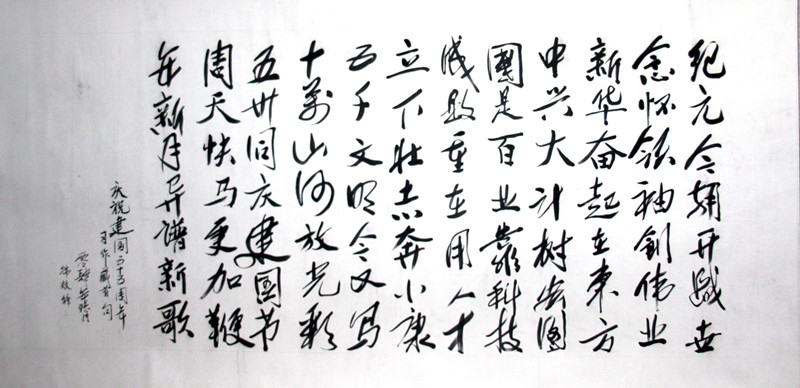 纪元今朝开盛世
念怀领袖創伟业
新华奋起在东方
中兴大计树宏图
國是百业靠科技
成败重在用人才
立下壮志奔小康
五千文明今又写
十萬山河放光彩
五州同庆建国节
周天快马更加鞭
年新月异谱新歌
庆祝建国五十五周年
习作藏首句
零肆年玖月